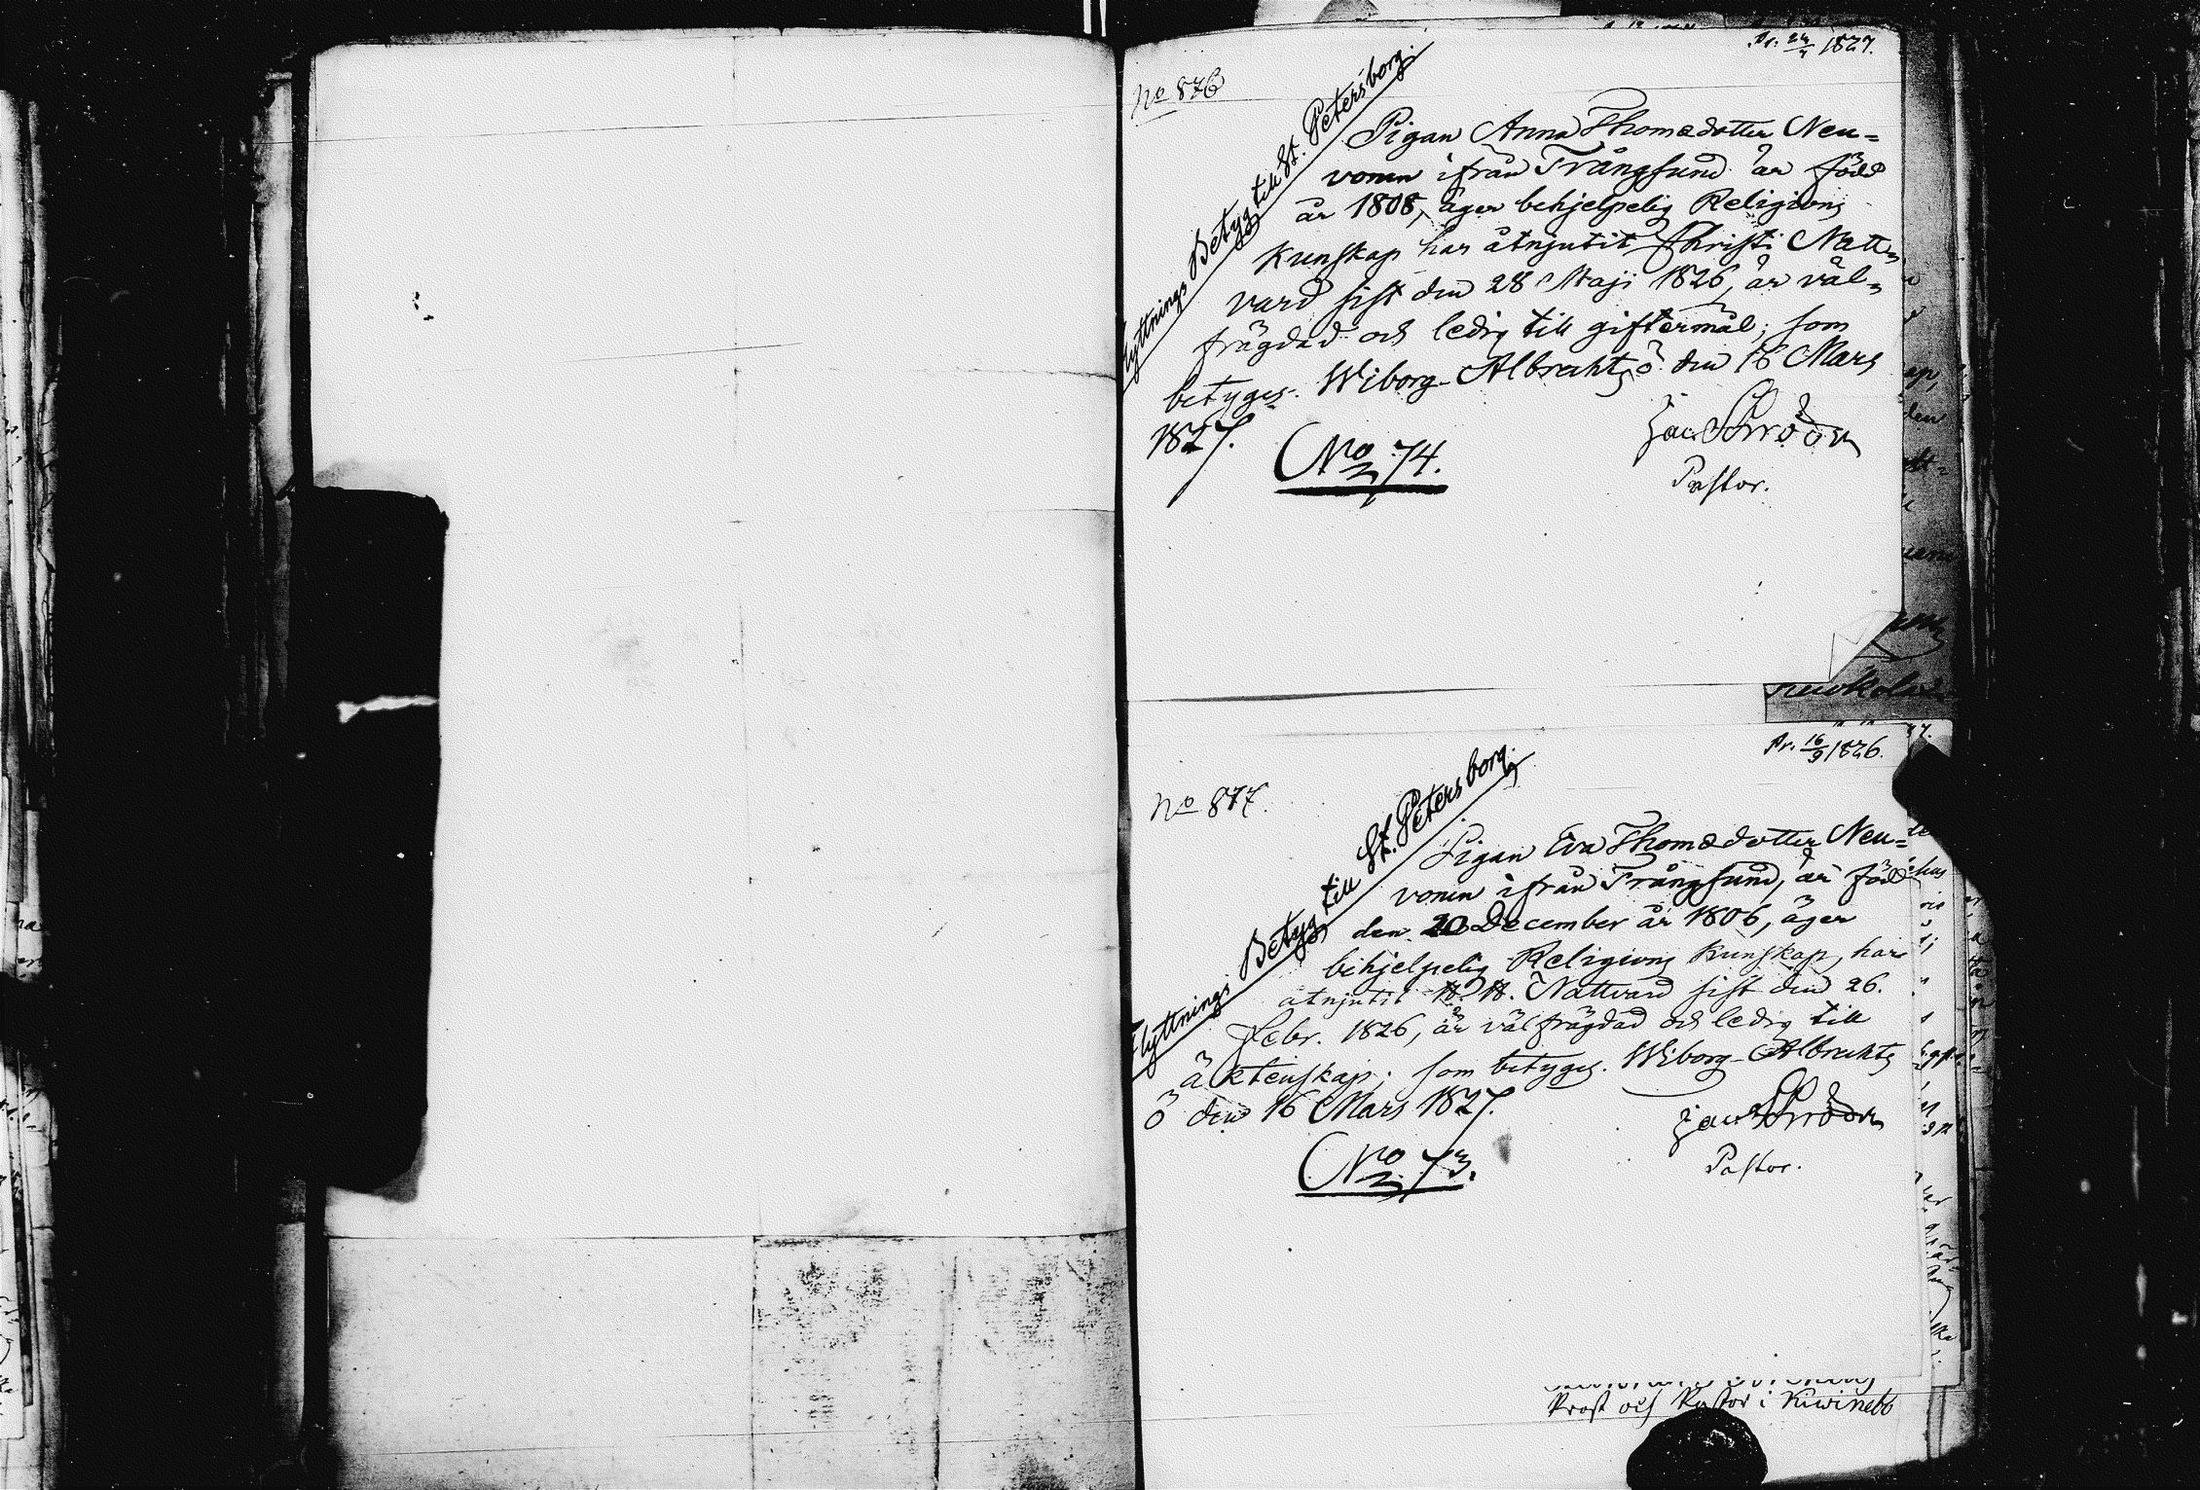 No 876
Pr. 24/4 1827.
Flyttnings Betyg till St. Petersborg.
Pigan Anna Thomædotter Neu=
vonen ifrån Trångsund är född
år 1808, äger behjelpelig Religions
Kunskap har åtnjutit Christi Natt=
vard sist den 28 Maji 1826, är väl=
frägdad och ledig till giftermål; som
betyges. Wiborg-Albrechts ö den 16 Mars
1827.
Jac Schröder
Pastor.
No 74.
Pr. 16/9 1826.
No 877.
Flyttnings Betyg till St. Petersborg.
Pigan Eva Thomædotter Neu=
vonen ifrån Trångsund, är född
den 20 December år 1806, äger
behjelpelig Religions Kunskap, har
åtnjutit H. H. Nattvard sist den 26.
Febr. 1826, är välfrägdad och ledig till
äktenskap; som betyges. Wiborg-Albrechts
ö den 16 Mars 1827.
Jac Schröder
Pastor.
No 73.
Prost och Pastor i Kiwinebb